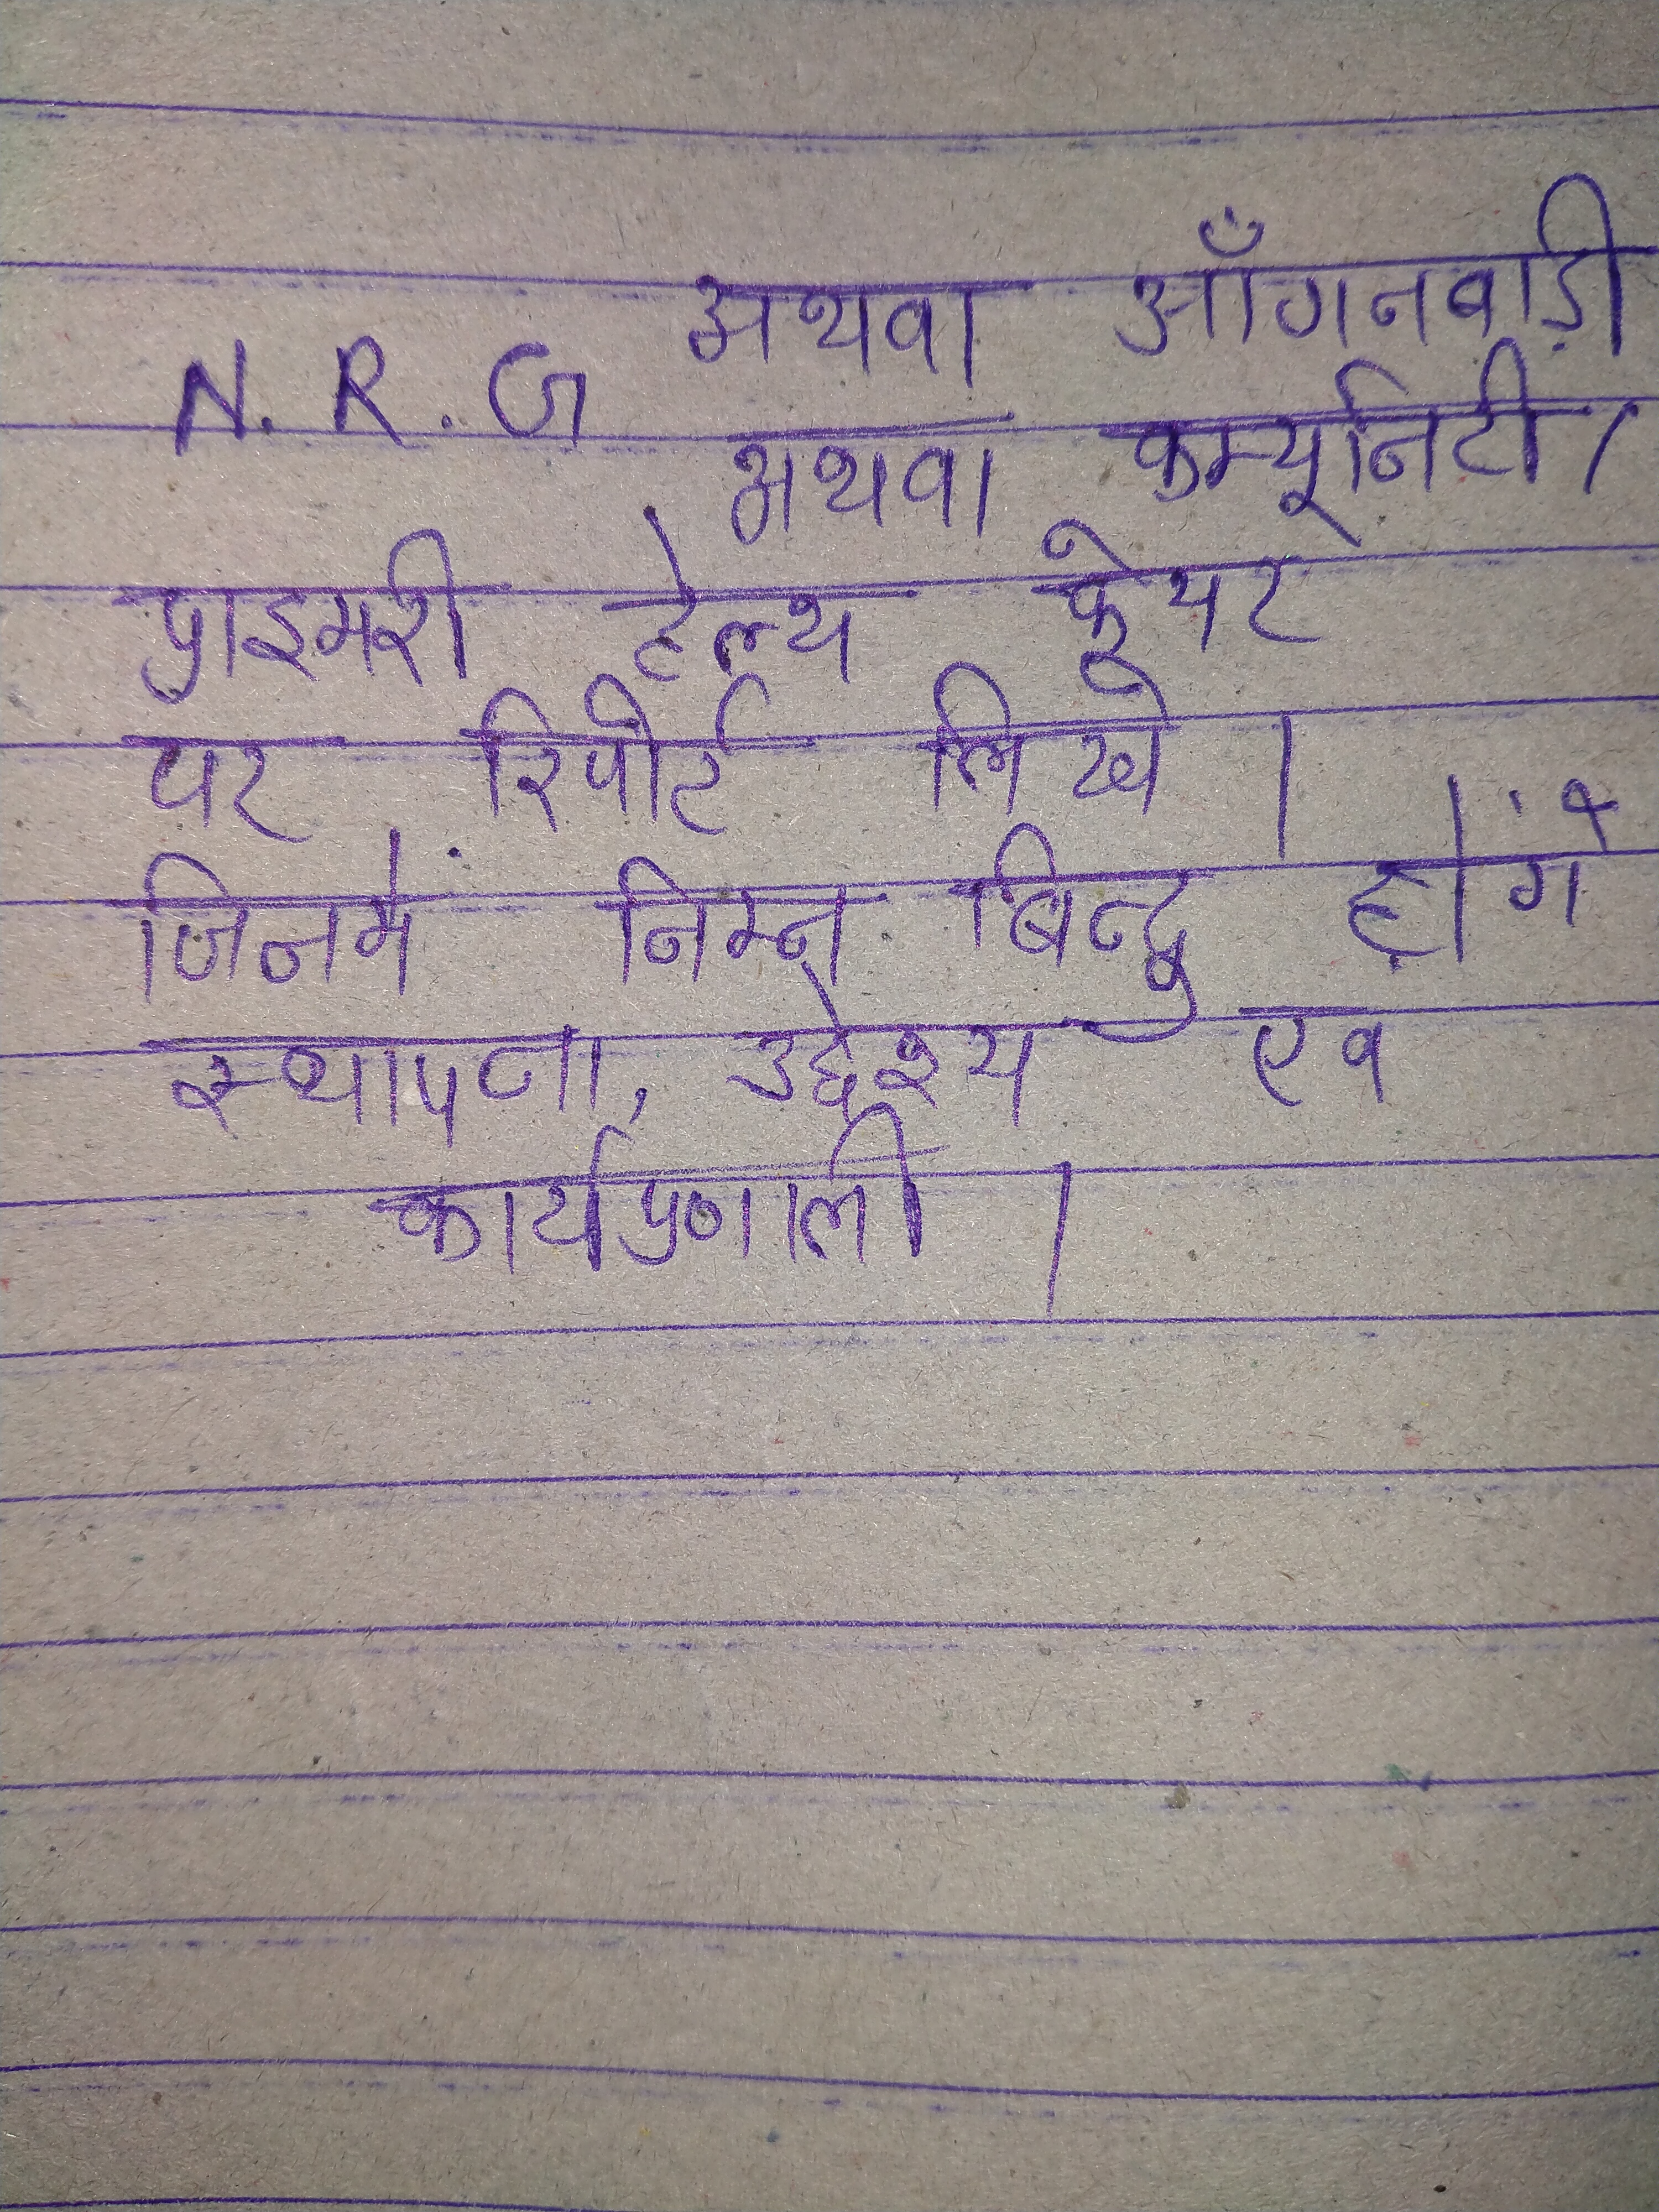 अथवा आँगनबाड़ी
N. R. G अथवा कम्यूनिटी /
प्राइमरी हेल्थ केयर
पर रिपोर्ट लिखे ।
जिनमें निम्न बिन्दु होंगे
स्थापना, उद्देश्य एव
कार्यप्रणाली ।